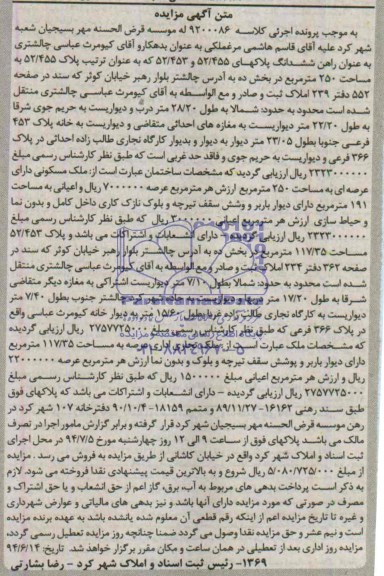 متن آگهی مزایده
به موجب پرونده اجرئی کلاسه ۹۲۰۰۰۸۶ له موسسه قرض الحسنه مهر بسیجیان شعبه
شهر کرد علیه آقای قاسم هاشمی مرغملکی به عنوان بدهکارو آقای کیومرث عباسی چالشتری
به عنوان راهن ششدانگ پلاکهای ۵۲/۴۵۵ و ۵۲/۴۵۳ که به عنوان ترتیب پلاک ۵۲/۴۵۵ به
مساحت ۲۵۰ مترمربع در بخش ده به آدرس چالشتر بلوار رهبر خیابان کوثر که سند در صفحه
۵۵۲ دفتر ۲۳۹ املاک ثبت و صادر و مع الواسطه به آقای کیومرث عباسی چالشتری منتقل
شده است محدود به حدود: شمالا به طول ۲۸/۲۰ متر درب و دیواریست به حریم جوی شرقا
به طول ۲۲/۲۰ متر دیواریست به مغازه های احداثی متقاضی و دیواریست به خانه پلاک ۴۵۳
فرعی جنوبا بطول ۲۳/۰۵ متر دیوار به دیوار و بدیوار کارگاه تجاری طالب زاده احداثی در پلاک
۳۶۶ فرعی و دیواریست به حریم جوی و فاقد حد غربی است که طبق نظر کارشناس رسمی مبلغ
۲۳۲۳۰۰۰۰۰۰ ریال ارزیابی گردید که مشخصات ساختمان عبارت است از: ملک مسکونی دارای
عرصه ای به مساحت ۲۵۰ مترمربع ارزش هر مترمربع عرصه ۷۰۰۰۰۰۰ ریال و اعیانی به مساحت
۱۹۱ مترمربع دارای دیوار باربر و وشش سقف تیرچه و بلوک نازک کاری داخل کامل و بدون نما
و حیاط سازی ارزش هر مترمربع اعیانی ۳۰۰۰۰۰۰ ریال که طبق نظر کارشناس رسمی مبلغ
۲۳۲۳۰۰۰۰۰۰ ریال ارزیابی گردید دارای انشعابات و اشتراکات می باشد و پلاک ۵۲/۴۵۳
مساحت ۱۱۷/۳۵ مترمربع در بخش ده به آدرس چالشتر بلوار رهبر خیابان کوثر که سند در
صفحه ۳۶۲ دفتر ۲۳۴ املاک ثبت و صادر و مع الواسطه به آقای کیومرث عباسی چالشتری منتقل
شده است محدود به حدود: شمالا بطول ۷/۱۰ متر دیواریست اشتراکی به مغازه دیگر متقاضی
شرقا به طول ۱۷/۲۰ متر جنوب بطول ۷/۴۰ متر
دیواریست به کارگاه تجاری طالب زاده غربا بطول ۱۵/۶۰ متر به دیوار خانه کیومرث عباسی واقع
در پلاک ۳۶۶ فرعی که طبق نظر کارشناس رسمی مبلغ ۲۷۵۷۷۲۵۰۰۰ ریال ارزیابی گردیده
که مشخصات ملک عبارت است از: ملک تجاری اداری عرصه به مساحت ۱۱۷/۳۵ مترمربع
دارای دیوار باربر و پوشش سقف تیرچه و بلوک و بدون نما ارزش هر مترمربع عرصه ۲۲۰۰۰۰۰۰
ریال و ارزش هر مترمربع اعیانی مبلغ ۱۵۰۰۰۰۰ ریال که طبق نظر کارشناس رسمی مبلغ
۲۷۵۷۷۲۵۰۰۰ ریال ارزیابی گردید – دارای انشعابات و اشتراکات می باشد که پلاکهای فوق
طبق سند رهنی ۱۶۱۶۲-۸۹/۱۱/۲۷ و متمم ۱۸۱۵۹-۹۰/۱۰/۴ دفترخانه ۱۰۷ شهر کرد در
رهن موسسه قرض الحسنه مهر بسیجیان شهر کرد قرار گرفته و برابر گزارش مامور اجرا در تصرف
مالک می باشد پلاکهای فوق از ساعت ۹ الی ۱۲ روز چهارشنبه مورخ ۹۴/۷/۵ در محل اجرای
ثبت اسناد و املاک شهر کرد واقع در خیابان کاشانی از طریق مزایده به فروش می رسد . مزایده
از مبلغ ۵/۰۸۰/۷۲۵/۰۰۰ ریال شروع و به بالاترین قیمت پیشنهادی نقدا فروخته می شود. لازم
به ذکر است پرداخت بدهی های مربوط به آب، برق، گاز اعم از حق انشعاب و یا حق اشتراک و
مصرف در صورتی که مورد مزایده دارای آنها باشد و نیز بدهی های مالیاتی و عوارض شهرداری
و غیره تا تاریخ مزایده اعم از اینکه رقم قطعی آن معلوم شده یانشده باشد به عهده برنده مزایده
است و نیم عشر و حق مزایده نقدا وصول می گردد ضمنا چنانچه روز مزایده تعطیل رسمی گردد،
مزایده روز اداری بعد از تعطیلی در همان ساعت و مکان مقرر برگزار خواهد شد. تاریخ: ۹۴/۶/۱۴
۱۳۶۹- رئیس ثبت اسناد و املاک شهر کرد – رضا بشارتی